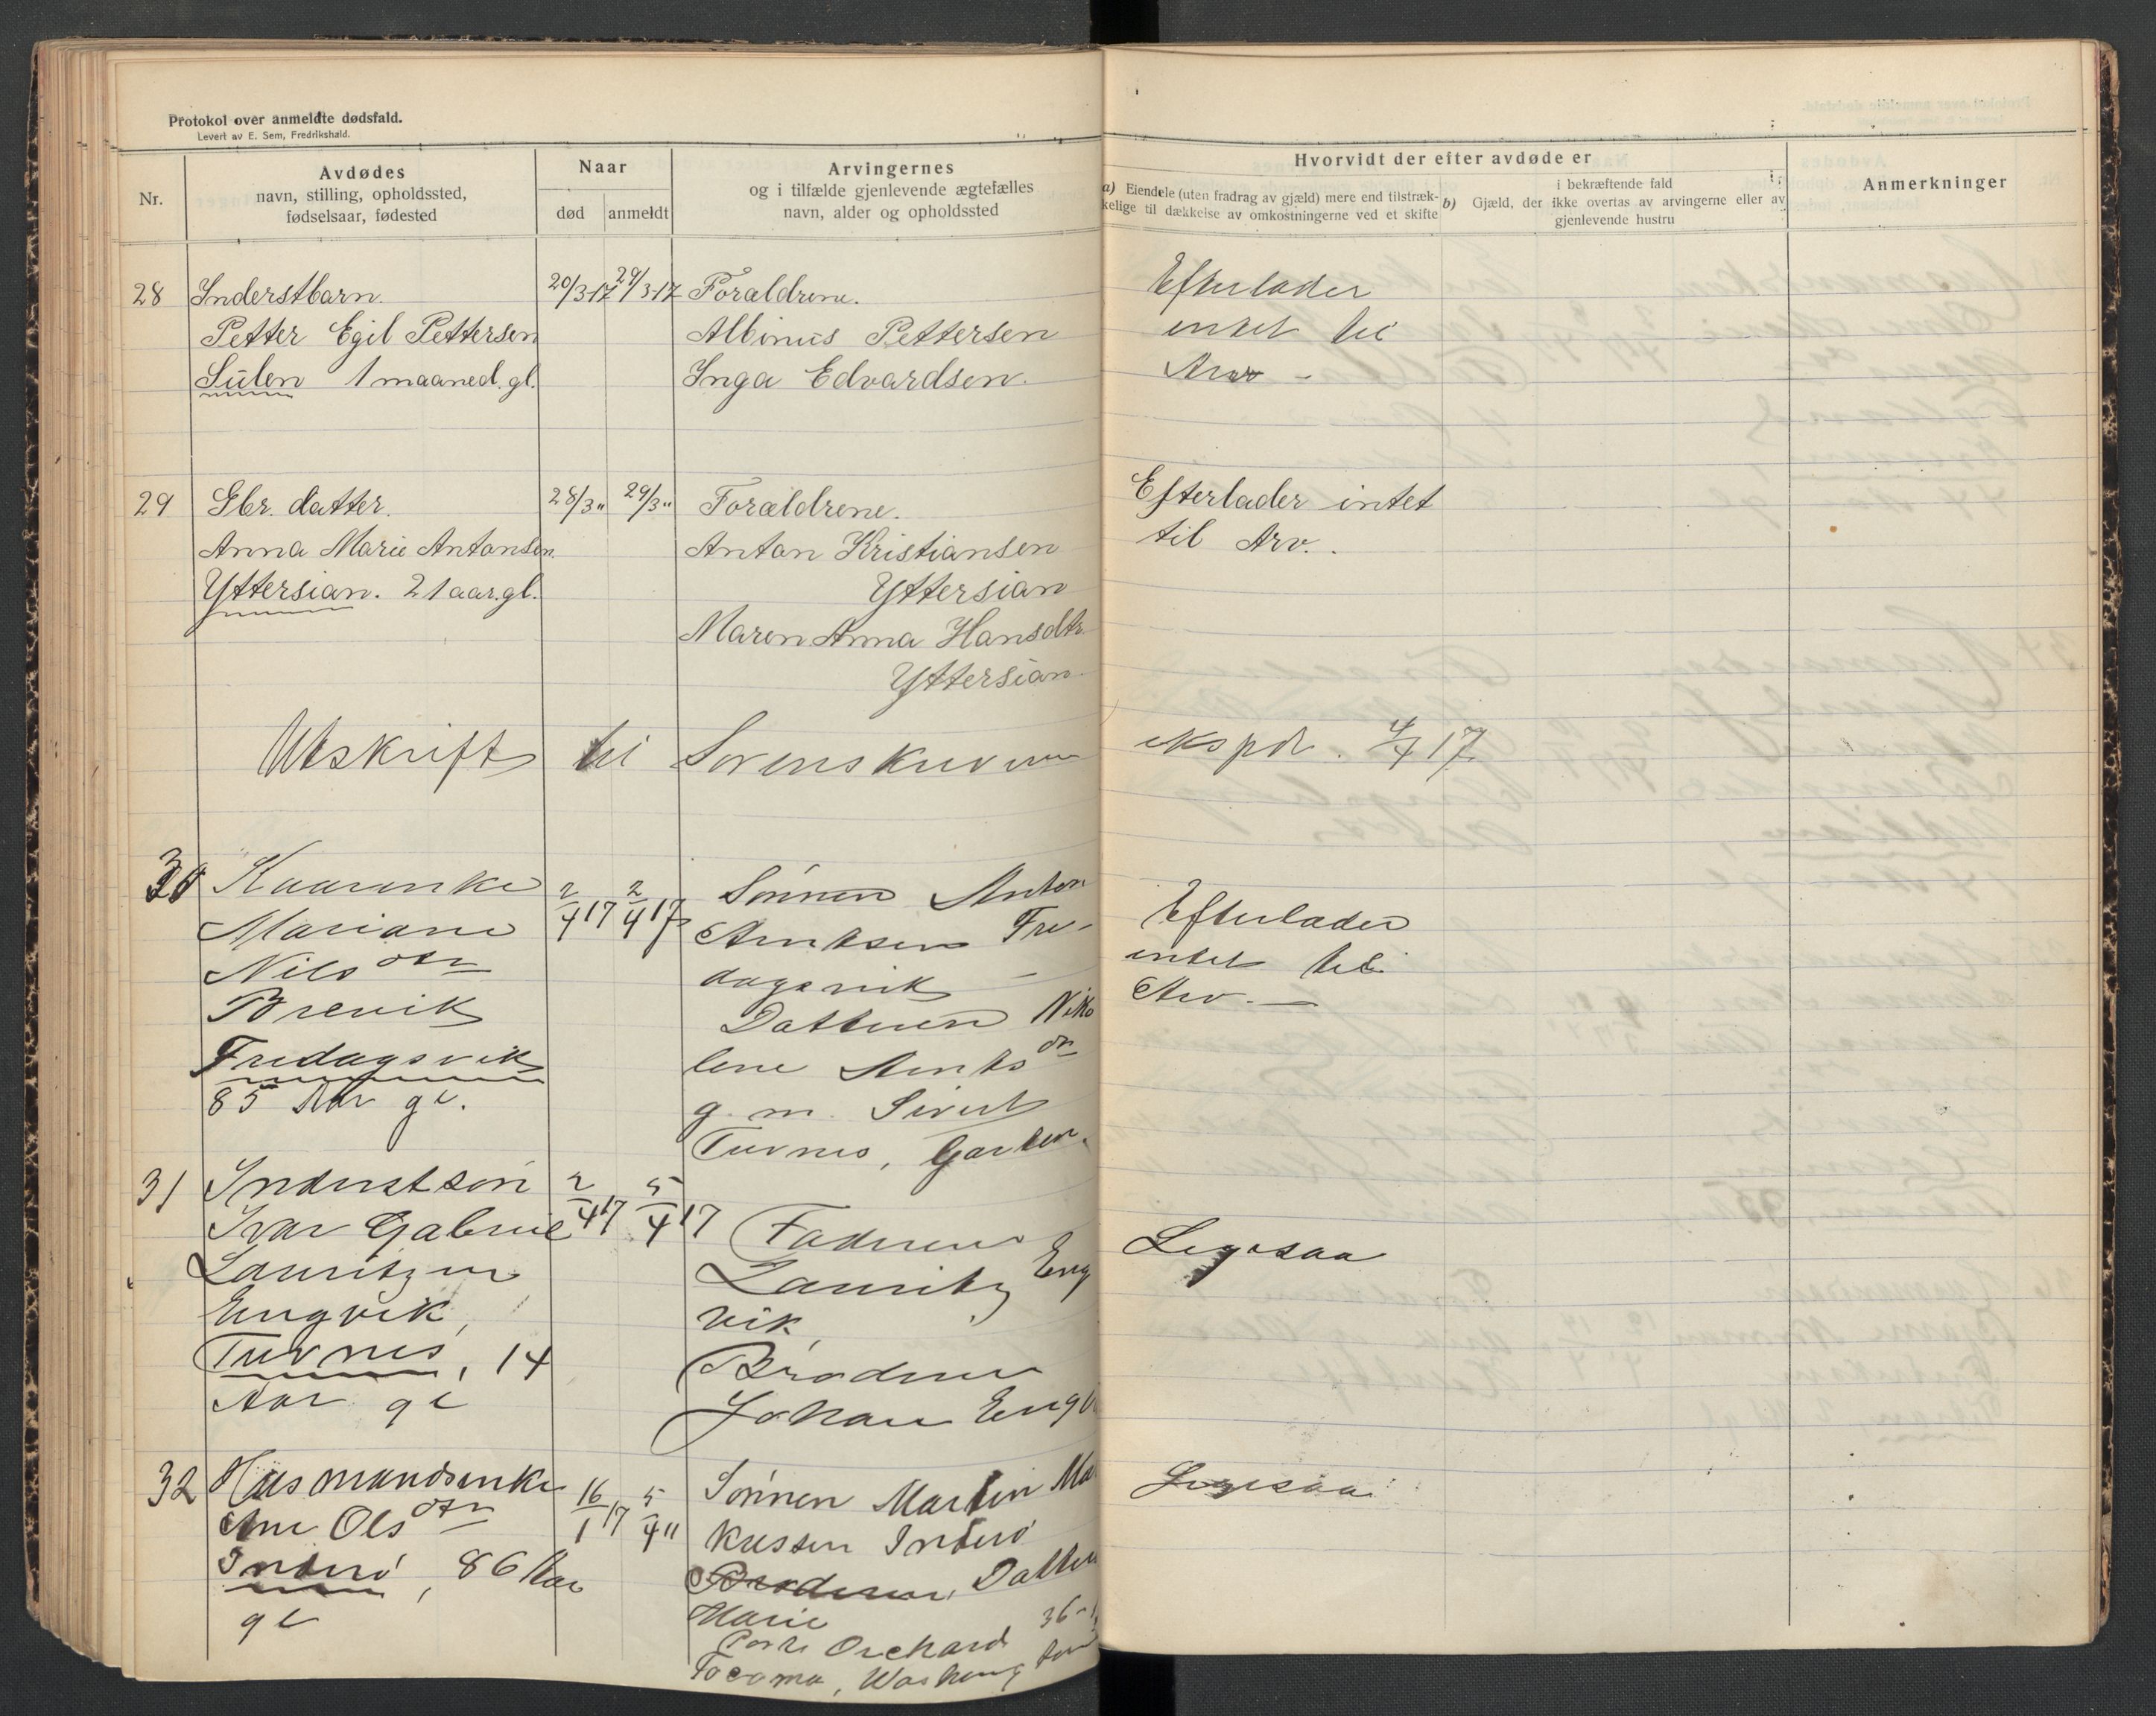 Protokol over anmeldte dødsfald.
Levert av E. Sem, Fredrikshald.
Nr.
Avdødes
navn, stilling, opholdssted,
fødselsaar, fødested
Naar
død anmeldt
Arvingernes
og i tilfælde gjenlevende ægtefælles
navn, alder og opholdssted
Hvorvidt der efter avdøde er
a) Eiendele (uten fradrag av gjæld) mere end tilstræk-
kelige til dækkelse av omkostningerne ved et skifte
i bekræftende fald
b) Gjæld, der ikke overtas av arvingerne eller av
gjenlevende hustru
Anmerkninger
28 Inderstbarn. 20/3 17 29/3 17 Forældrene. Efterlader
Petter Egil Pettersen Albinus Pettersen intet til
Sulen 1 maaned. gl. Inga Edvardsen. Arv -
29 Gbr. datter. 28/3 " 29/3 " Forældrene. Efterlader intet
Anna Marie Antonsen Anton Kristiansen til Arv.
Yttersian. 21 aar. gl. Yttersian
Maren Anna Hansdtr.
Yttersian.
Utskrift til Sorenskriveren ekspdr. 4/4 17
30 Kaarenke 2/4 17 2/4 17 Sønnen Anton
Mariane Arntsen Fre- Efterlader
Nilsdtr dagsvik - intet til
Brevik Datteren Niko Arv. -
Fredagsvik lene Arntsdr
85 Aar gl. g. m. Sivert
Tuvnes, Garten.
31 Inderstsøn 2/4 17 5/4 17
Ivar Gabriel Faderen Ligesaa
Lauritzen Lauritz Eng
Engvik, vik,
Tuvnes, 14 Broderen
Aar gl Johan Engvi
32 Husmandsenke 16/1 17 5/4 " Sønnen Martin Ma Ligesaa
Ane Olsdtr kussen Inderø
Inderø, 86 Aar Broderen, Datter
gl Marie 36-
Porte Orchard
Tocoma, Washington